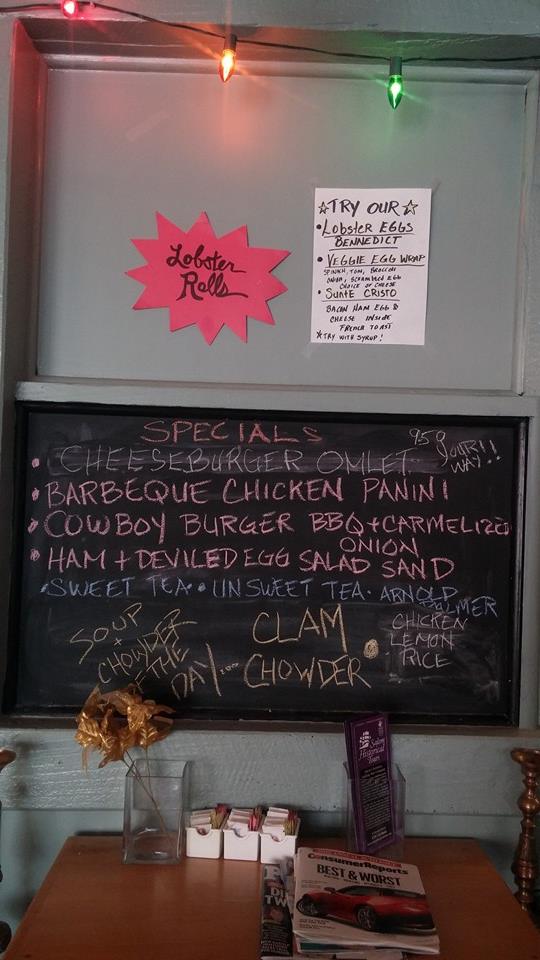 Lobster
Rolls
☆TRY OUR☆
• LOBSTER EGGS
BENNEDICT
• VEGGIE EGG WRAP
SPINICH, TOM, BROCCOLI
ONION, SCRAMBLED EGG
CHOICE OF CHEESE
• SUNTE CRISTO
BACON HAM EGG &
CHEESE INSIDE
FRENCH TOAST
☆TRY WITH SYRUP!
SPECIALS
• CHEESEBURGER OMLET 959 YOUR WAY!!
• BARBEQUE CHICKEN PANINI
• COWBOY BURGER BBQ + CARMELIZED
ONION
• HAM + DEVILED EGG SALAD SAND
• SWEET TEA • UNSWEET TEA • ARNOLD
PALMER
SOUP
+
CHOWDER
OF THE
DAY...
CLAM
CHOWDER
CHICKEN
LEMON
RICE
Salem
Historical
Tours
ConsumerReports
BEST & WORST